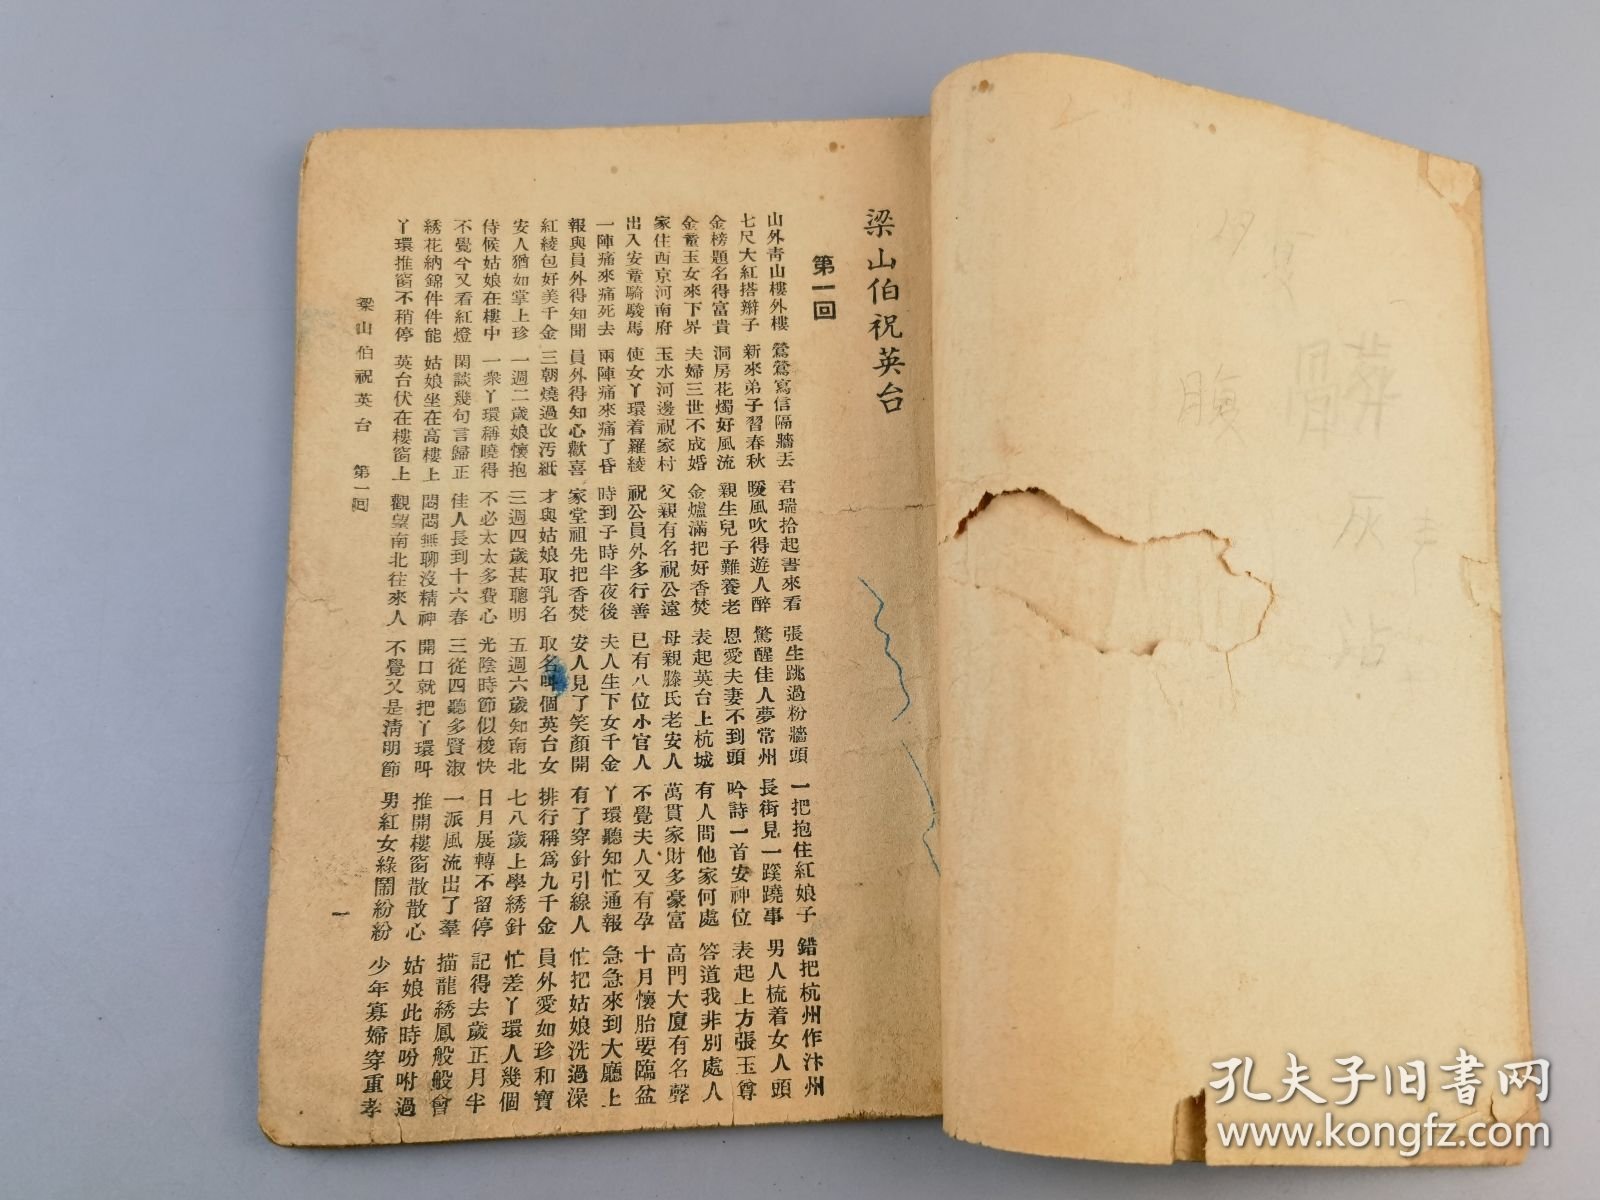 梁山伯祝英台
第一回
山外青山樓外樓 鶯鶯寫信隔牆丟 君瑞拾起書來看 張生跳過粉牆頭 一把抱住紅娘子 錯把杭州作汴州
七尺大紅搭辮子 新來弟子習春秋 暖風吹得遊人醉 驚醒佳人夢常州 長街見一蹊蹺事 男人梳着女人頭
金榜題名得富貴 洞房花燭好風流 親生兒子難養老 恩愛夫妻不到頭 吟詩一首安神位 表起上方張玉尊
金童玉女來下界 夫婦三世不成婚 金爐滿把好香焚 表起英台上杭城 有人問他家何處 答道我非別處人
家住西京河南府 玉水河邊祝家村 父親有名祝公遠 母親滕氏老安人 萬貫家財多豪富 高門大廈有名聲
出入安童騎駿馬 使女丫環着羅綾 祝公員外多行善 已有八位小官人 不覺夫人又有孕 十月懷胎要臨盆
一陣痛來痛死去 兩陣痛來痛了昏 時到子時半夜後 夫人生下女千金 丫環聽知忙通報 急急來到大廳上
報與員外得知聞 員外得知心歡喜 家堂祖先把香焚 安人見了笑顏開 有了穿針引線人 忙把姑娘洗過澡
紅綾包好美千金 三朝燒過改汚紙 才與姑娘取乳名 取名叫個英台女 排行稱爲九千金 員外愛如珍和寶
安人猶如掌上珍 一週二歲娘懷抱 三週四歲甚聰明 五週六歲知南北 七八歲上學綉針 忙差丫環人幾個
侍候姑娘在樓中 一衆丫環稱曉得 不必太太多費心 光陰時節似梭快 日月展轉不留停 記得去歲正月半
不覺今又看紅燈 閑談幾句言歸正 佳人長到十六春 三從四聽多賢淑 一派風流出了羣 描龍綉鳳般般會
綉花納錦件件能 姑娘坐在高樓上 悶悶無聊沒精神 開口就把丫環叫 推開樓窗散散心 姑娘此時吩咐過
丫環推窗不稍停 英台伏在樓窗上 觀望南北往來人 不覺又是清明節 男紅女綠鬧紛紛 少年寡婦穿重孝
梁山伯祝英台 第一回 一
腹
灰
沾
孔夫子旧书网
www.kongfz.com